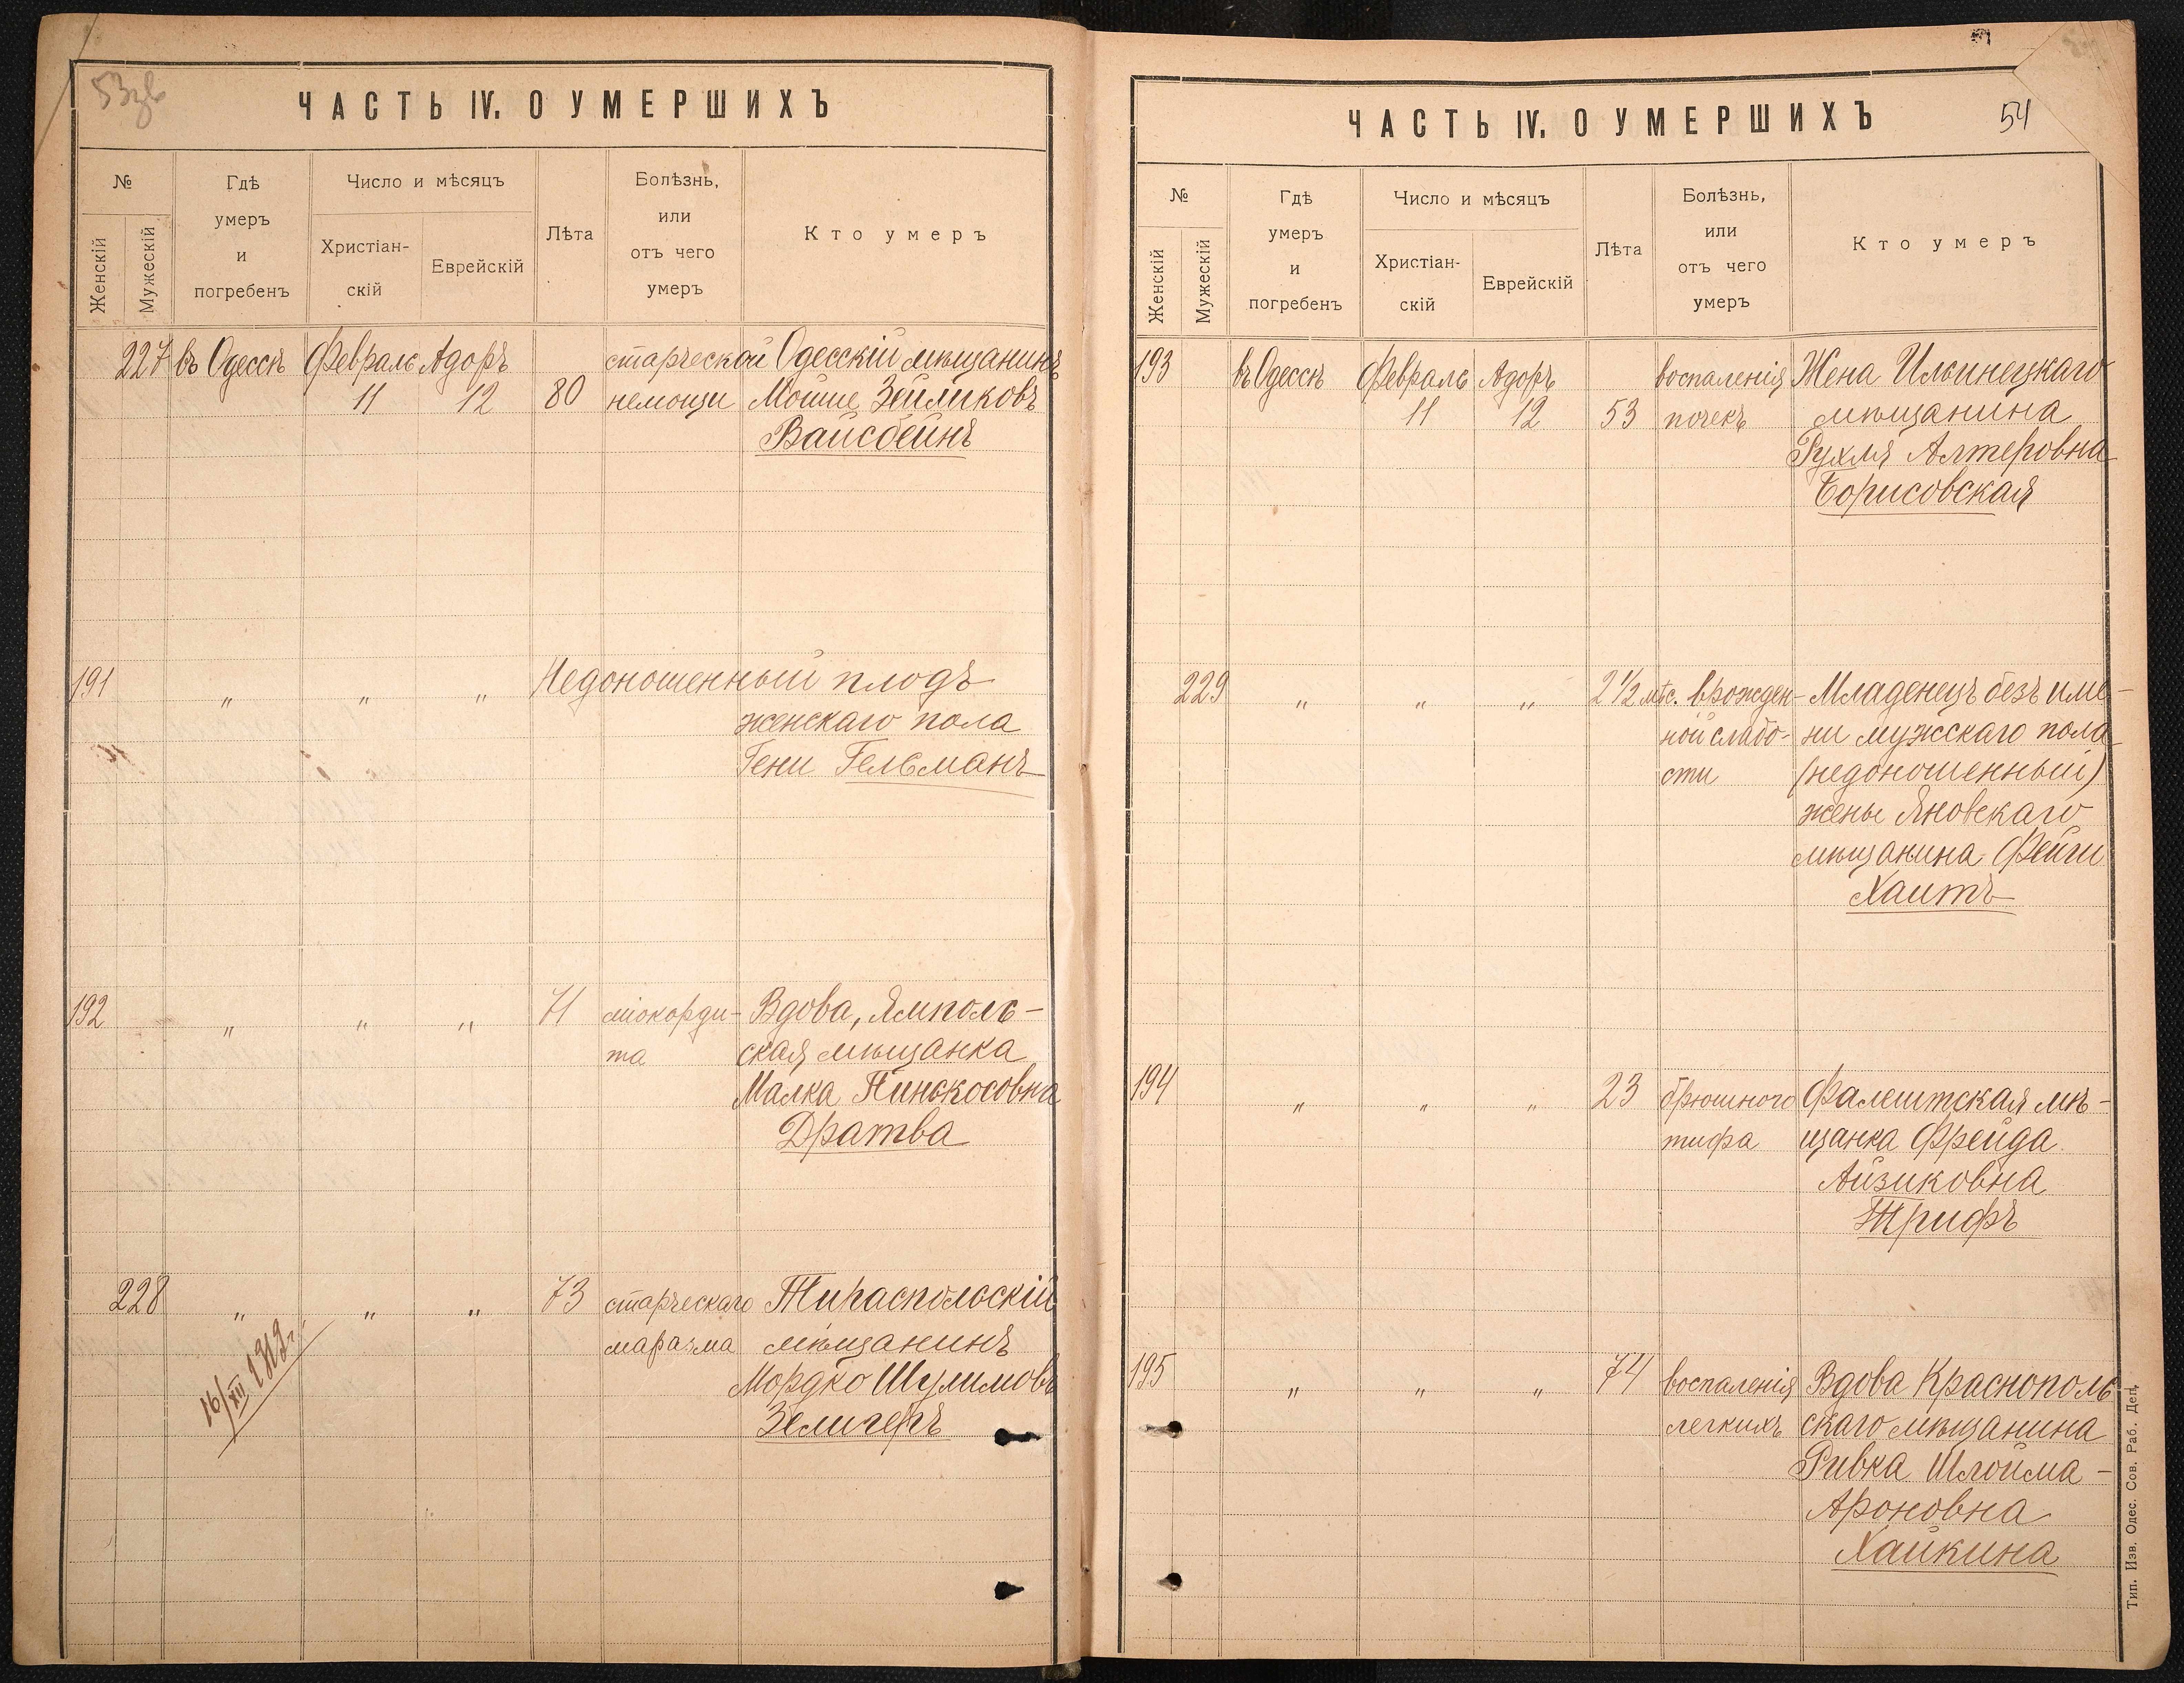 53зв
ЧАСТЬ IV. О УМЕРШИХЪ
№
Женскій
Мужескій
Гдѣ
умеръ
и
погребенъ
Число и мѣсяцъ
Христіан-
скій
Еврейскій
Лѣта
Болѣзнь,
или
отъ чего
умеръ
Кто умеръ
227 въ Одессѣ Февраль Адоръ старческой Одесскій мѣщанинъ
11 12 80 немощи Мойше Зейликовъ
Вайсбейнъ
191 " " " Недоношенный плодъ
женскаго пола
Гени Гельманъ
192 " " " 71 міокорди- Вдова, Ямполь-
та ская мѣщанка
Малка Пинькосовна
Дратва
228 " " " 73 старческаго Тираспольскій
маразма мѣщанинъ
Мордко Шулимовъ
Зелигеръ
16/XII 1919г.
ЧАСТЬ IV. О УМЕРШИХЪ
54
№
Женскій
Мужескій
Гдѣ
умеръ
и
погребенъ
Число и мѣсяцъ
Христіан-
скій
Еврейскій
Лѣта
Болѣзнь,
или
отъ чего
умеръ
Кто умеръ
193 въ Одессѣ Февраль Адоръ воспаленія Жена Ильинецкаго
11 12 53 почекъ мѣщанина
Рухля Алтеровна
Борисовская
229 " " " 2 1/2 мѣс. врожден- Младенецъ безъ име-
ной слабо- ни мужскаго пола
сти (недоношенный)
жены Яновскаго
мѣщанина Фейги
Хаитъ
194 " " " 23 брюшного Фалештская мѣ-
тифа щанка Фрейда
Айзиковна
Трифъ
195 " " " 74 воспаленія Вдова Краснополь
легкихъ скаго мѣщанина
Ривка Шлойма-
Ароновна
Хайкина
Тип. Изв. Одес. Сов. Раб. Деп.